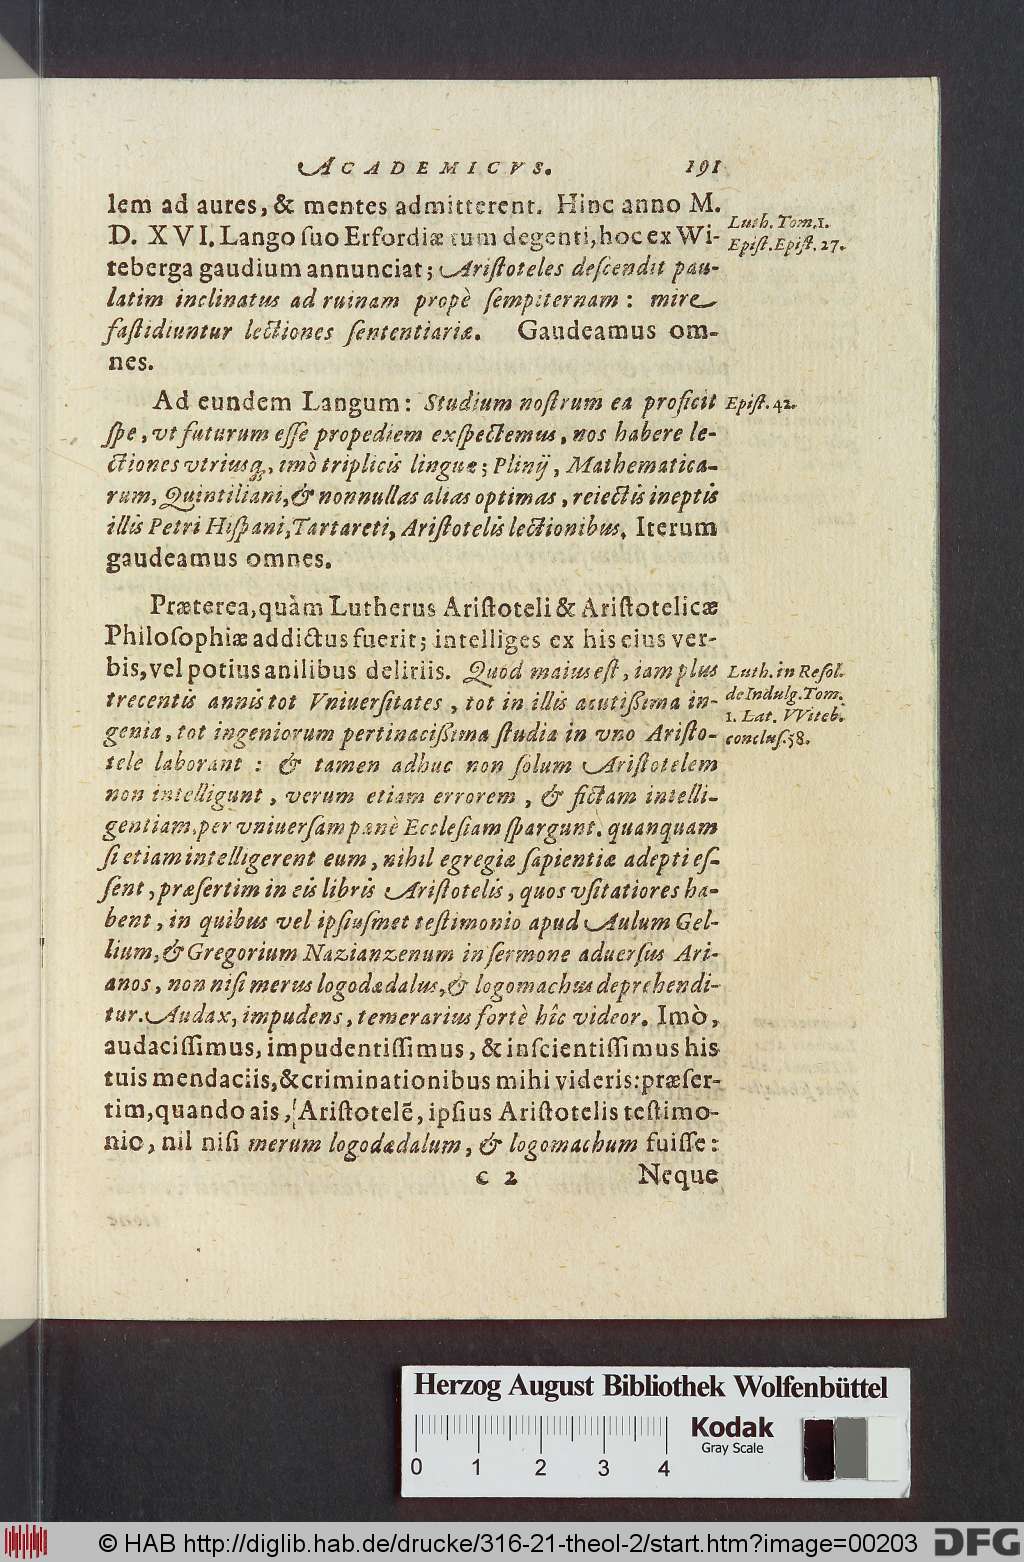 ACADEMICVS. 191
lem ad aures, & mentes admitterent. Hinc anno M.
D. XVI. Lango ſuo Erfordiæ tum degenti, hoc ex Wi-
teberga gaudium annunciat; Ariſtoteles deſcendit pau-
latim inclinatus ad ruinam propè ſempiternam: mire
faſtidiuntur lectiones ſententiariæ. Gaudeamus om-
nes.
Luth. Tom. 1.
Epiſt. Epiſt. 27.
Ad eundem Langum: Studium noſtrum ea proficit
ſpe, vt futurum eſſe propediem exſpectemus, nos habere le-
ctiones vtriusq;, imò triplicis linguæ; Plinij, Mathematica-
rum, Quintiliani, & nonnullas alias optimas, reiectis ineptis
illis Petri Hiſpani, Tartareti, Ariſtotelis lectionibus. Iterum
gaudeamus omnes.
Epiſt. 42.
Præterea, quàm Lutherus Ariſtoteli & Ariſtotelicæ
Philoſophiæ addictus fuerit; intelliges ex his eius ver-
bis, vel potius anilibus deliriis. Quod maius eſt, iam plus
trecentis annis tot Vniuerſitates, tot in illis acutißima in-
genia, tot ingeniorum pertinacißima ſtudia in vno Ariſto-
tele laborant: & tamen adhuc non ſolum Ariſtotelem
non intelligunt, verum etiam errorem, & fictam intelli-
gentiam, per vniuerſam penè Eccleſiam ſpargunt. quanquam
ſi etiam intelligerent eum, nihil egregiæ ſapientiæ adepti eſ-
ſent, præſertim in eis libris Ariſtotelis, quos vſitatiores ha-
bent, in quibus vel ipſiuſmet teſtimonio apud Aulum Gel-
lium, & Gregorium Nazianzenum in ſermone aduerſus Ari-
anos, non niſi merus logodædalus, & logomachus deprehendi-
tur. Audax, impudens, temerarius fortè hîc videor. Imò,
audaciſſimus, impudentiſſimus, & inſcientiſſimus his
tuis mendaciis, & criminationibus mihi videris: præſer-
tim, quando ais, Ariſtotelē, ipſius Ariſtotelis teſtimo-
nio, nil niſi merum logodædalum, & logomachum fuiſſe:
Luth. in Reſol.
de Indulg. Tom.
1. Lat. VViteb.
concluſ. 58.
c 2 Neque
Herzog August Bibliothek Wolfenbüttel
Kodak
Gray Scale
0 1 2 3 4
© HAB http://diglib.hab.de/drucke/316-21-theol-2/start.htm?image=00203
DFG